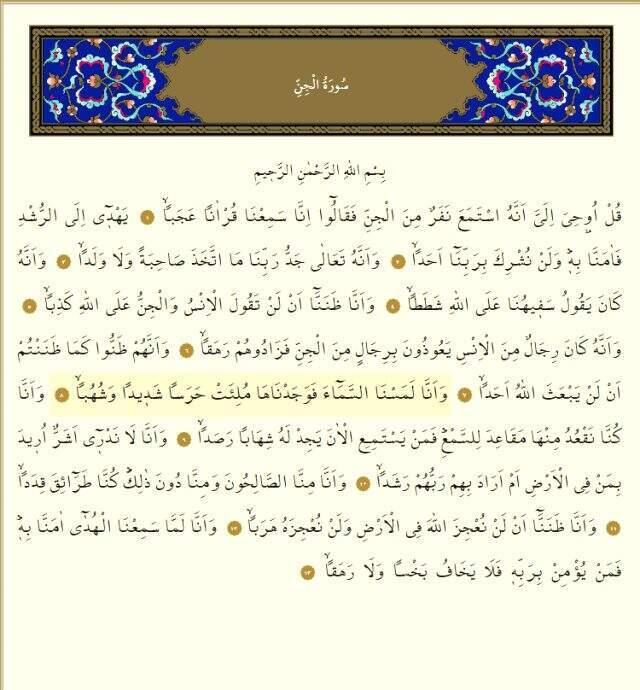 سُورَةُ الْجِنِّ
بِسْمِ اللهِ الرَّحْمٰنِ الرَّح۪يمِ
قُلْ اُو۫حِيَ اِلَيَّ اَنَّهُ اسْتَمَعَ نَفَرٌ مِنَ الْجِنِّ فَقَالُٓوا اِنَّا سَمِعْنَا قُرْاٰنًا عَجَبًاۙ ﴿١﴾ يَهْد۪ٓي اِلَى الرُّشْدِ
فَاٰمَنَّا بِه۪ۜ وَلَنْ نُشْرِكَ بِرَبِّنَٓا اَحَدًاۙ ﴿٢﴾ وَاَنَّهُ تَعَالٰى جَدُّ رَبِّنَا مَا اتَّخَذَ صَاحِبَةً وَلَا وَلَدًاۙ ﴿٣﴾ وَاَنَّهُ
كَانَ يَقُولُ سَف۪يهُنَا عَلَى اللهِ شَطَطًاۙ ﴿٤﴾ وَاَنَّا ظَنَنَّٓا اَنْ لَنْ تَقُولَ الْاِنْسُ وَالْجِنُّ عَلَى اللهِ كَذِبًاۙ ﴿٥﴾
وَاَنَّهُ كَانَ رِجَالٌ مِنَ الْاِنْسِ يَعُوذُونَ بِرِجَالٍ مِنَ الْجِنِّ فَزَادُوهُمْ رَهَقًاۙ ﴿٦﴾ وَاَنَّهُمْ ظَنُّوا كَمَا ظَنَنْتُمْ
اَنْ لَنْ يَبْعَثَ اللهُ اَحَدًاۙ ﴿٧﴾ وَاَنَّا لَمَسْنَا السَّمَٓاءَ فَوَجَدْنَاهَا مُلِئَتْ حَرَسًا شَد۪يدًا وَشُهُبًاۙ ﴿٨﴾ وَاَنَّا
كُنَّا نَقْعُدُ مِنْهَا مَقَاعِدَ لِلسَّمْعِۜ فَمَنْ يَسْتَمِعِ الْاٰنَ يَجِدْ لَهُ شِهَابًا رَصَدًاۙ ﴿٩﴾ وَاَنَّا لَا نَدْر۪ٓي اَشَرٌّ اُر۪يدَ
بِمَنْ فِي الْاَرْضِ اَمْ اَرَادَ بِهِمْ رَبُّهُمْ رَشَدًاۙ ﴿١٠﴾ وَاَنَّا مِنَّا الصَّالِحُونَ وَمِنَّا دُونَ ذٰلِكَۜ كُنَّا طَرَٓائِقَ قِدَدًاۙ
﴿١١﴾ وَاَنَّا ظَنَنَّٓا اَنْ لَنْ نُعْجِزَ اللهَ فِي الْاَرْضِ وَلَنْ نُعْجِزَهُ هَرَبًاۙ ﴿١٢﴾ وَاَنَّا لَمَّا سَمِعْنَا الْهُدٰٓى اٰمَنَّا بِه۪ۜ
فَمَنْ يُؤْمِنْ بِرَبِّه۪ فَلَا يَخَافُ بَخْسًا وَلَا رَهَقًاۙ ﴿١٣﴾